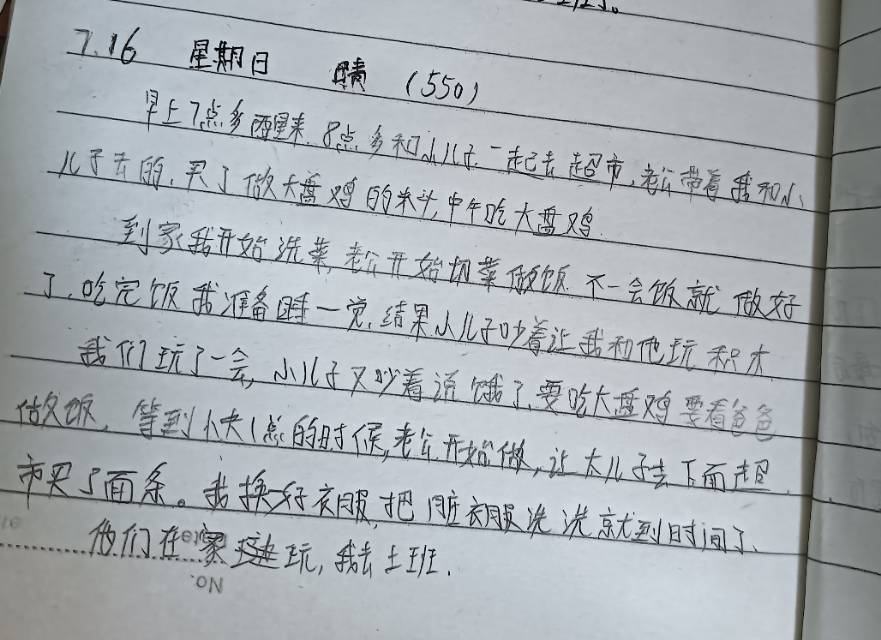 7.16 星期日 晴 (550)
早上7点多醒来,8点多和小儿子一起去超市,老公带着我和小
儿子去的,买了做大盘鸡的米斗,中午吃大盘鸡.
到家我开始洗菜,老公开始切菜做饭 不一会饭就做好
了,吃完饭我准备睡一觉,结果小儿子吵着让我和他玩积木
我们玩了一会,小儿子又吵着说饿了,要吃大盘鸡要看爸爸
做饭,等到快1点的时候,老公开始做,让大儿子去下面超
市买了面条。我换好衣服,把脏衣服洗洗就到时间了、
他们在家玩,我去上班.
No.